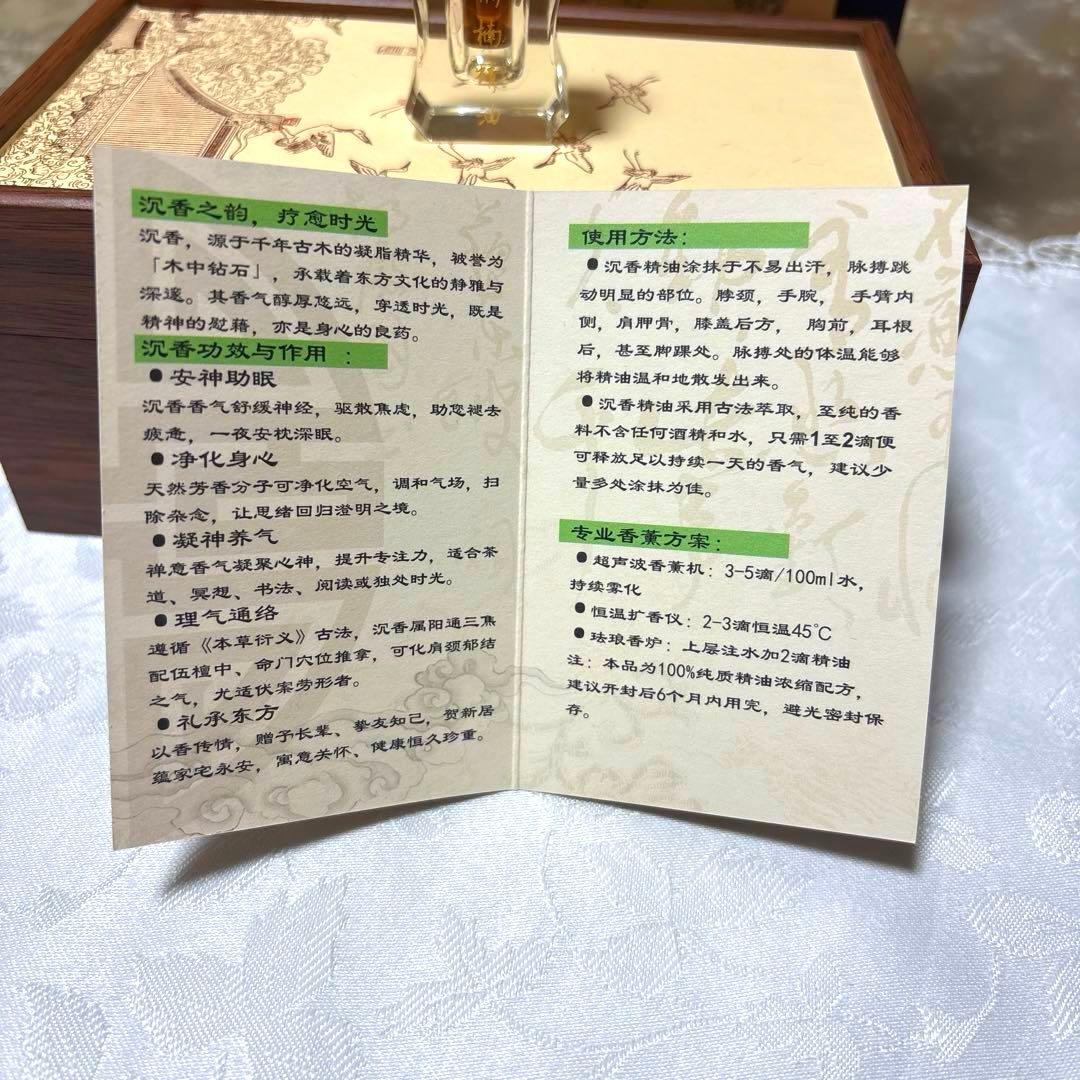 油
沉香之韵，疗愈时光
沉香，源于千年古木的凝脂精华，被誉为
「木中钻石」，承载着东方文化的静雅与
深邃。其香气醇厚悠远，穿透时光，既是
精神的慰藉，亦是身心的良药。
沉香功效与作用：
●安神助眠
沉香香气舒缓神经，驱散焦虑，助您褪去
疲惫，一夜安枕深眠。
●净化身心
天然芳香分子可净化空气，调和气场，扫
除杂念，让思绪回归澄明之境。
●凝神养气
禅意香气凝聚心神，提升专注力，适合茶
道、冥想、书法、阅读或独处时光。
●理气通络
遵循《本草衍义》古法，沉香属阳通三焦
配伍檀中、命门穴位推拿，可化肩颈郁结
之气，尤适伏案劳形者。
●礼承东方
以香传情，赠予长辈、挚友知己，贺新居
蕴家宅永安，寓意关怀、健康恒久珍重。
使用方法：
●沉香精油涂抹于不易出汗，脉搏跳
动明显的部位。脖颈，手腕， 手臂内
侧，肩胛骨，膝盖后方， 胸前，耳根
后，甚至脚踝处。脉搏处的体温能够
将精油温和地散发出来。
●沉香精油采用古法萃取，至纯的香
料不含任何酒精和水，只需1至2滴便
可释放足以持续一天的香气，建议少
量多处涂抹为佳。
专业香薰方案：
●超声波香薰机：3-5滴/100ml水，
持续雾化
●恒温扩香仪：2-3滴恒温45℃
●珐琅香炉：上层注水加2滴精油
注：本品为100%纯质精油浓缩配方，
建议开封后6个月内用完，避光密封保
存。